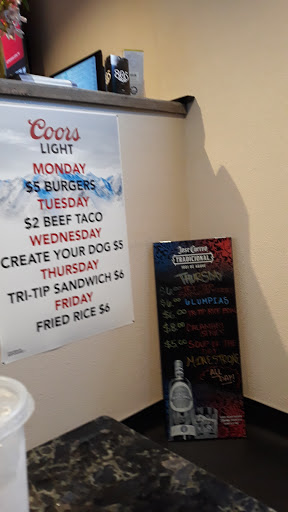 Coors
LIGHT
MONDAY
$5 BURGERS
TUESDAY
$2 BEEF TACO
WEDNESDAY
CREATE YOUR DOG $5
THURSDAY
TRI-TIP SANDWICH $6
FRIDAY
FRIED RICE $6
805
Jose Cuervo
TRADICIONAL
THURSDAY
$6.00
$6.00 LUMPIAS
$6.00
$8.00
$5.00 SOUP OF THE DAY
MINESTRONE
ALL DAY!